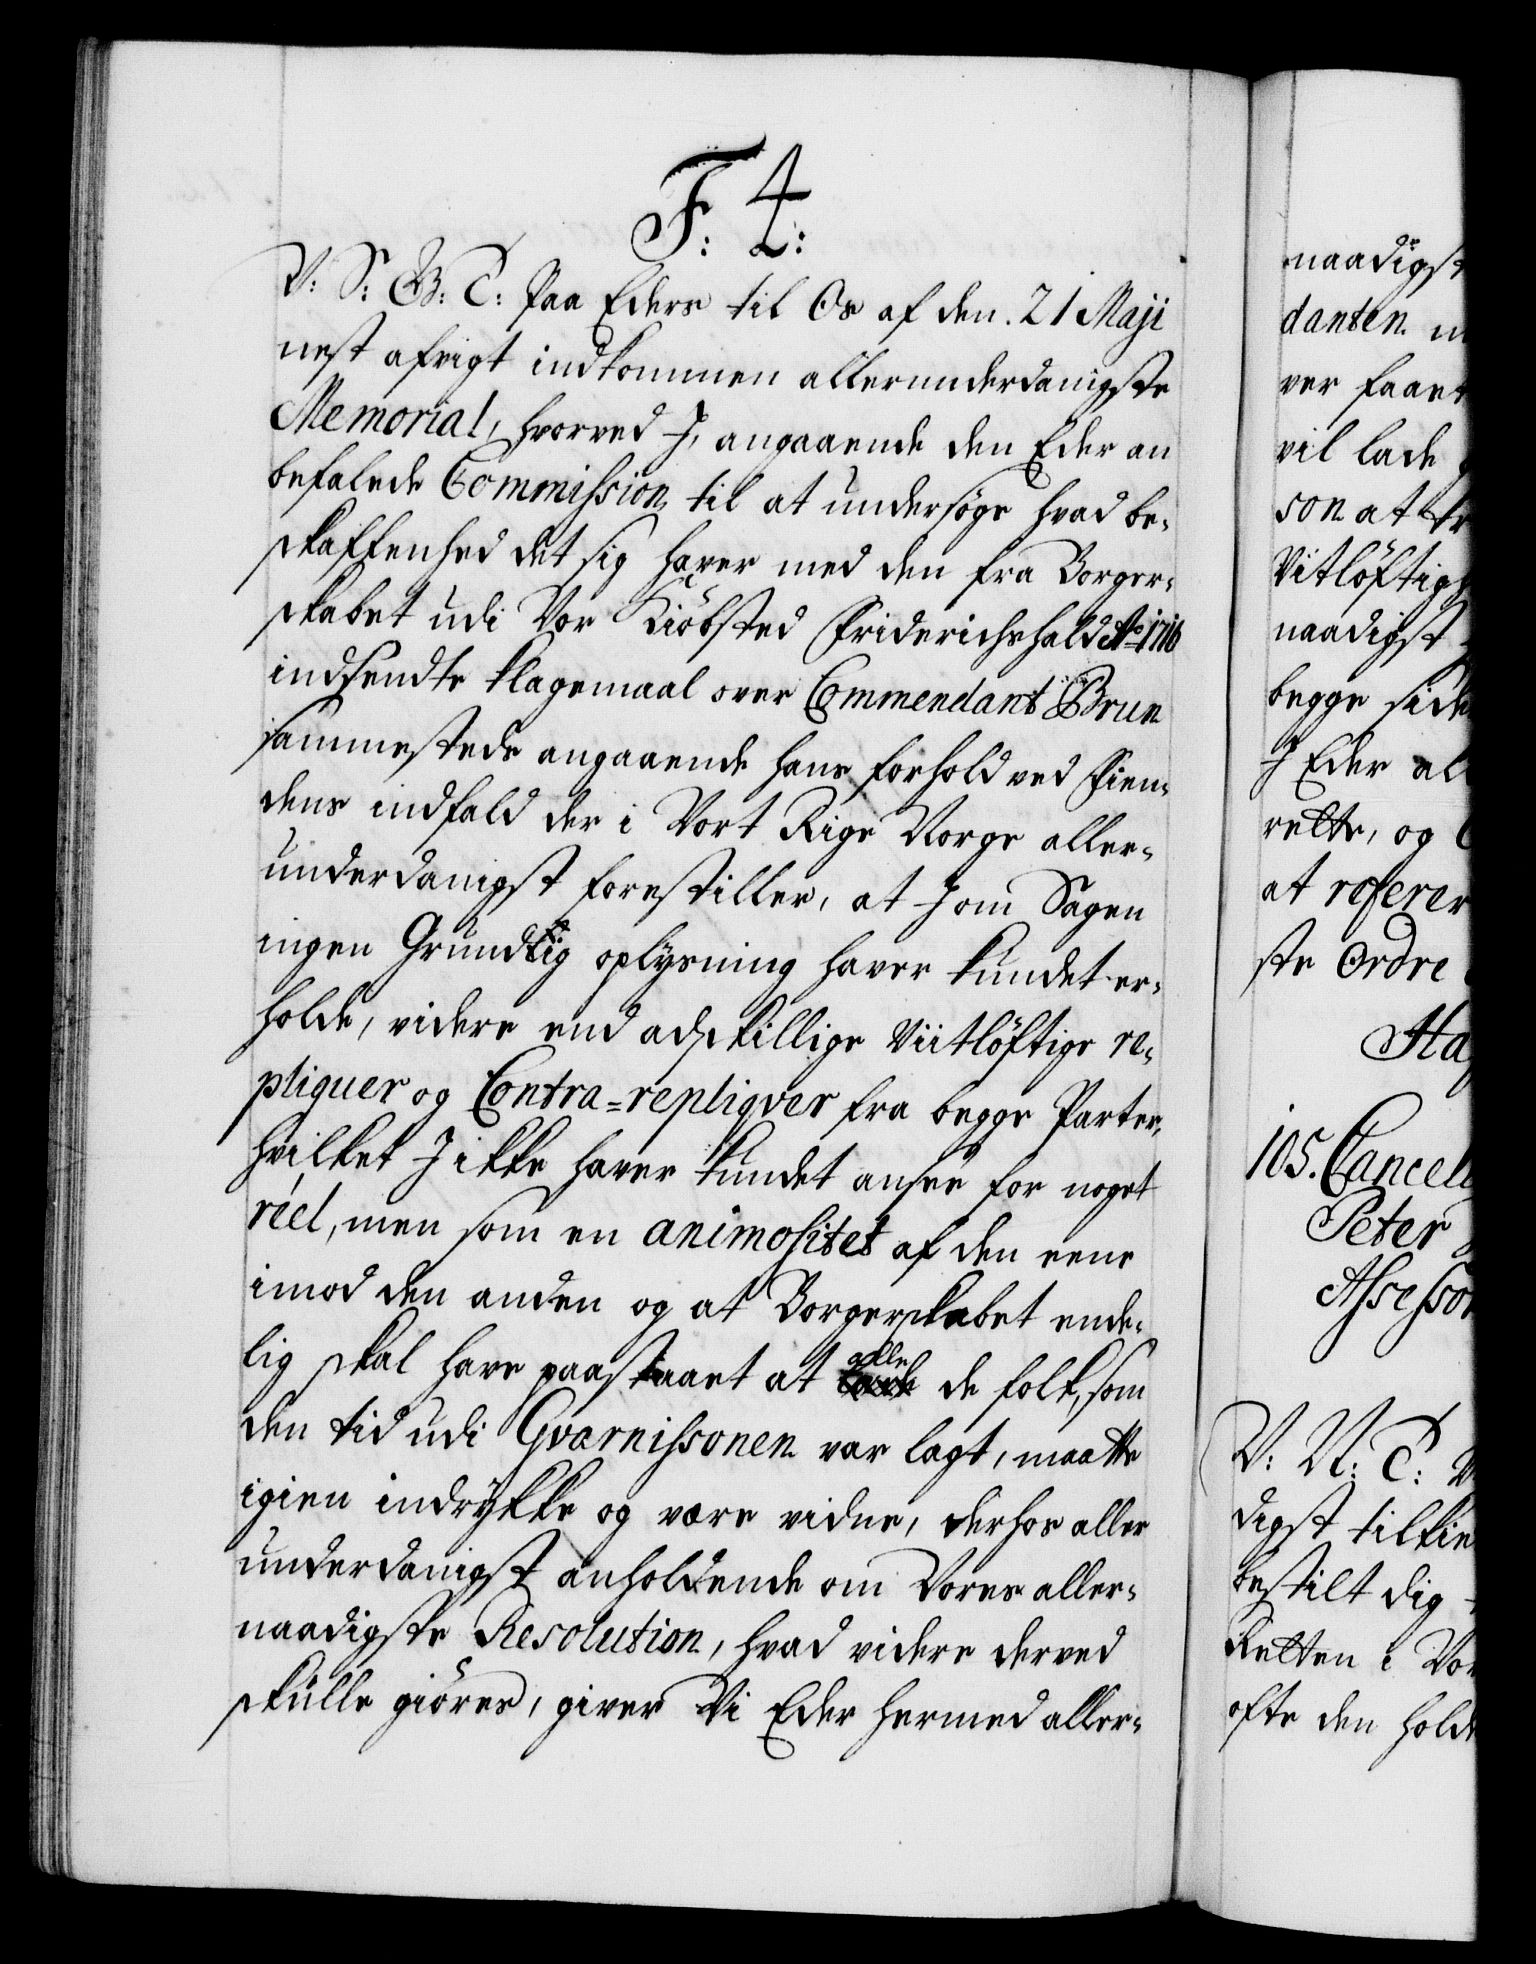 F: 4:
V: S: G: T: Paa Eders til Os af den 21 Maji
nest afvigt indkommen allerunderdanigste
Memorial, hvorved I, angaaende den Eder an
befalede Commission, til at undersøge hvad be-
skaffenhed det sig haver med den fra Borger-
skabet udi Vor Kiöbsted Friderichshald Ao 1716
indsendte klagemaal over Commendant Brun
sammesteds angaaende hans forhold ved Fien-
dens indfald der i Vort Rige Norge aller-
underdanigst forestiller, at I om Sagen
ingen Grundtlig oplysning haver kundet er-
holde, videre end adskillige Viitlöftige re-
pliquer og Contra-repliqver fra begge Parter,
hvilket I ikke haver kundet ansee for noget
réel, men som en animositet af den eene
imod den anden og at Borgerskabet ende-
lig skal have paastaaet at alle de folk, som
den tid udi Gvarnissonen var lagt, maatte
igien indrykke og være vidne, derhos aller
underdanigst anholdende om Vores aller-
naadigste Resolution, hvad videre derved
skulle giöres, giver Vi Eder hermed aller-
naadigst
danten
ver faaet
vil lade
son at
Vitlöftig
naadigst
begge side
I Eder al
rette, og
at referer
ste Ordre
105. Cancell
Peter
Assessor
V: N: T:
digst tilkie
bestilt dig
Retten i Vor
ofte den holde